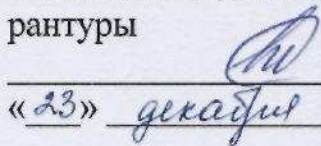 рантуры
«23» декабря